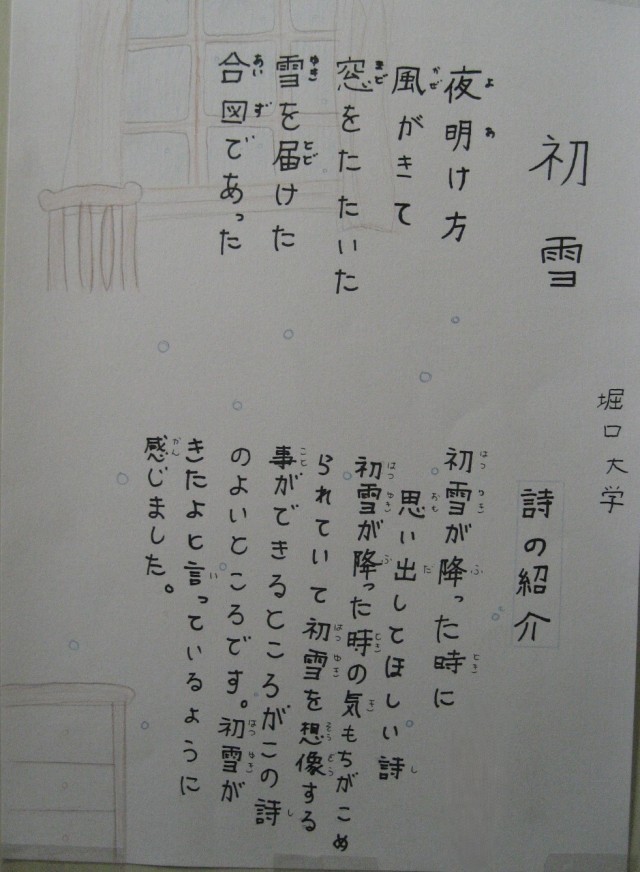 初雪
堀口大学
夜明け方
風がきて
窓をたたいた
雪を届けた
合図であった
詩の紹介
初雪が降った時に
思い出してほしい詩
初雪が降った時の気もちがこめ
られていて初雪を想像する
事ができるところがこの詩
のよいところです。初雪が
きたよと言っているように
感じました。